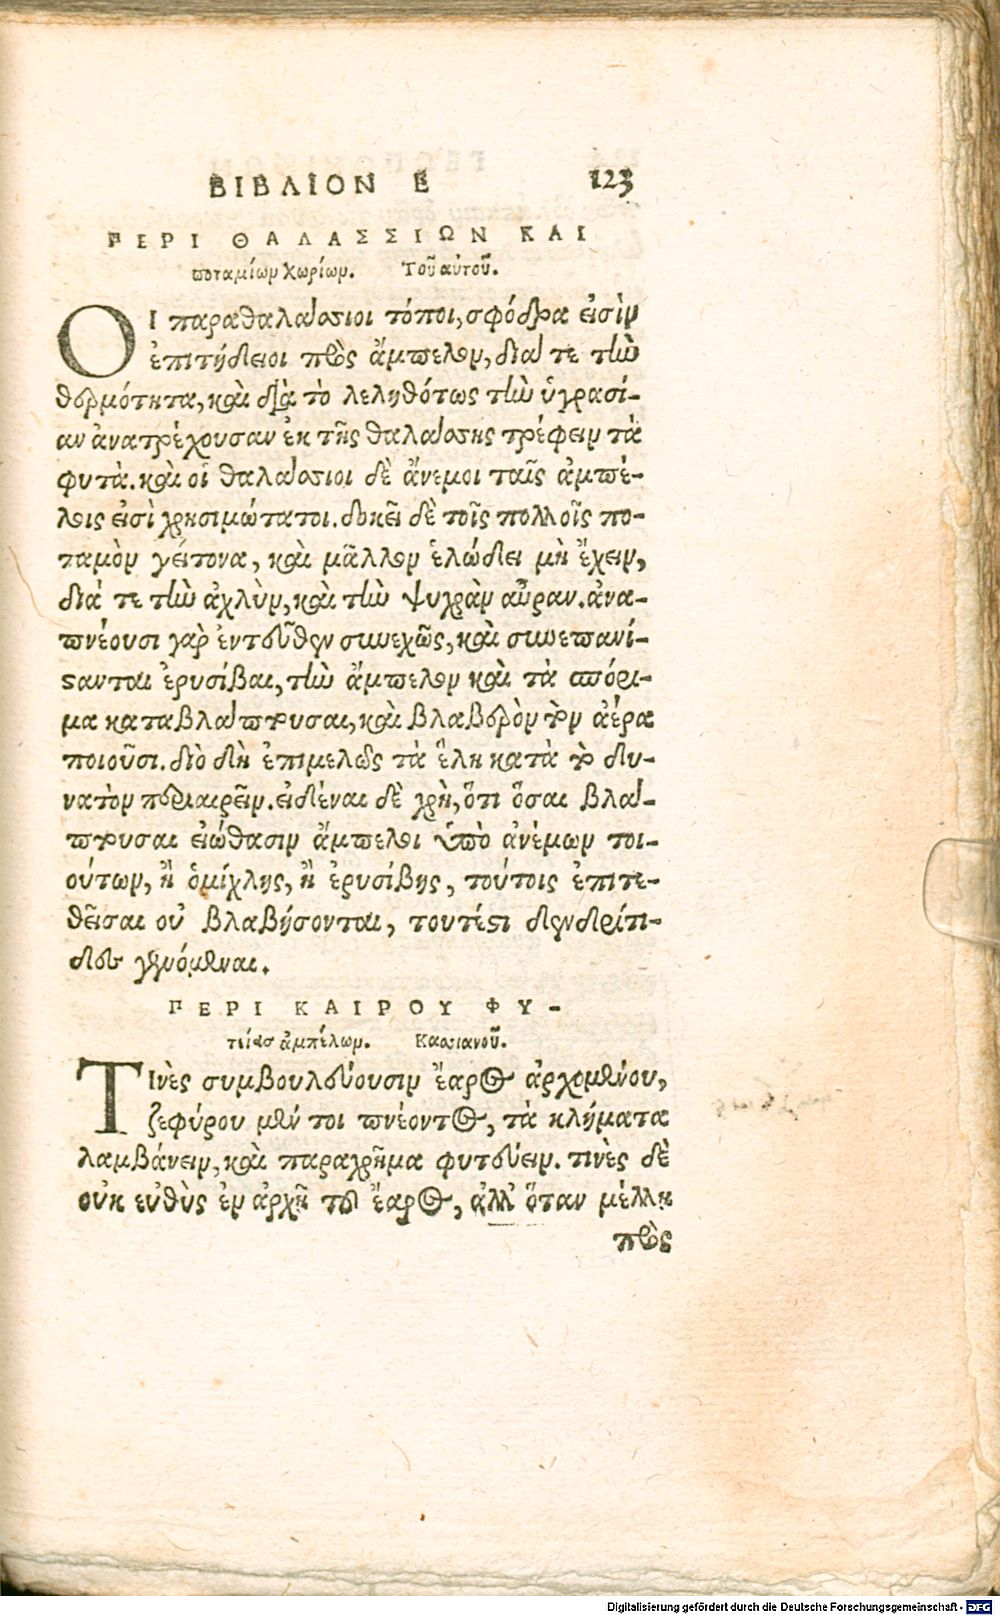 ΒΙΒΛΙΟΝ Ε 123
ΠΕΡΙ ΘΑΛΑΣΣΙΩΝ ΚΑΙ
ποταμίων χωρίων. Τοῦ αὐτοῦ.
ΟΙ παραθαλάσσιοι τόποι, σφόδρα εἰσὶν
ἐπιτήδειοι πρὸς ἄμπελον, διά τε τὴν
θερμότητα, καὶ διὰ τὸ λεληθότως τὴν ὑγρασί-
αν ἀνατρέχουσαν ἐκ τῆς θαλάσσης τρέφειν τὰ
φυτὰ. καὶ οἱ θαλάσσιοι δὲ ἄνεμοι ταῖς ἀμπέ-
λοις εἰσὶ χρησιμώτατοι. δοκεῖ δὲ τοῖς πολλοῖς πο-
ταμὸν γείτονα, καὶ μᾶλλον ἑλώδει μὴ ἔχειν,
διά τε τὴν ἀχλὺν, καὶ τὴν ψυχρὰν αὖραν. ἀνα-
πνέουσι γὰρ ἐντεῦθεν συνεχῶς, καὶ συνεπανί-
στανται ἐρυσίβαι, τὴν ἄμπελον καὶ τὰ σπόρι-
μα καταβλάπτουσαι, καὶ βλαβερὸν τὸν ἀέρα
ποιοῦσι. διὸ δὴ ἐπιμελῶς τὰ ἕλη κατὰ τὸ δυ-
νατὸν περιαιρεῖν. εἰδέναι δὲ χρὴ, ὅτι ὅσαι βλά-
πτουσαι εἰώθασιν ἄμπελοι ὑπὸ ἀνέμων τοι-
ούτων, ἢ ὁμίχλης, ἢ ἐρυσίβης, τούτοις ἐπιτε-
θεῖσαι οὐ βλαβήσονται, τουτέστι δενδρίτι-
δες γενόμεναι.
ΠΕΡΙ ΚΑΙΡΟΥ ΦΥ-
τείας ἀμπέλων. Κασιανοῦ.
ΤΙνὲς συμβουλεύουσιν ἔαρος ἀρχομένου,
ζεφύρου μέν τοι πνέοντος, τὰ κλήματα
λαμβάνειν, καὶ παραχρῆμα φυτεύειν. τινὲς δὲ
οὐκ εὐθὺς ἐν ἀρχῇ τοῦ ἔαρος, ἀλλ' ὅταν μέλλῃ
πρὸς
Digitalisierung gefördert durch die Deutsche Forschungsgemeinschaft - DFG